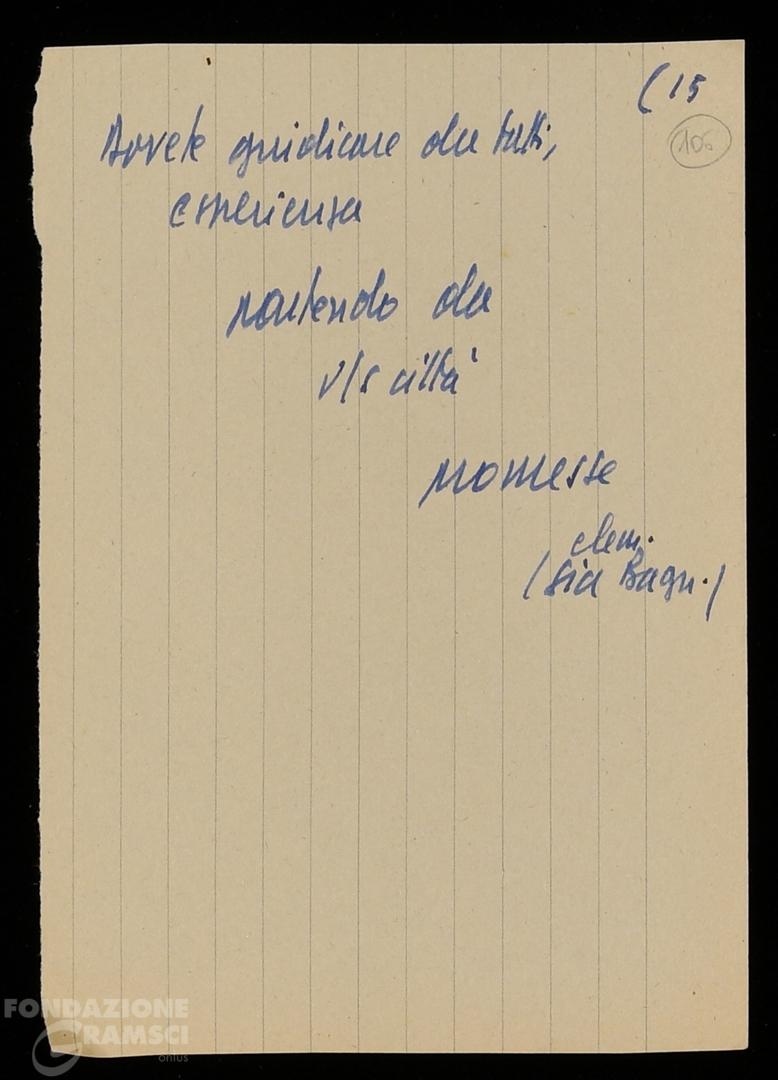 (15
106
Dovete giudicare da fatti,
esperienza
partendo da
v/s città
promesse
dem.
(sia Bagn.)
FONDAZIONE
GRAMSCI
onlus